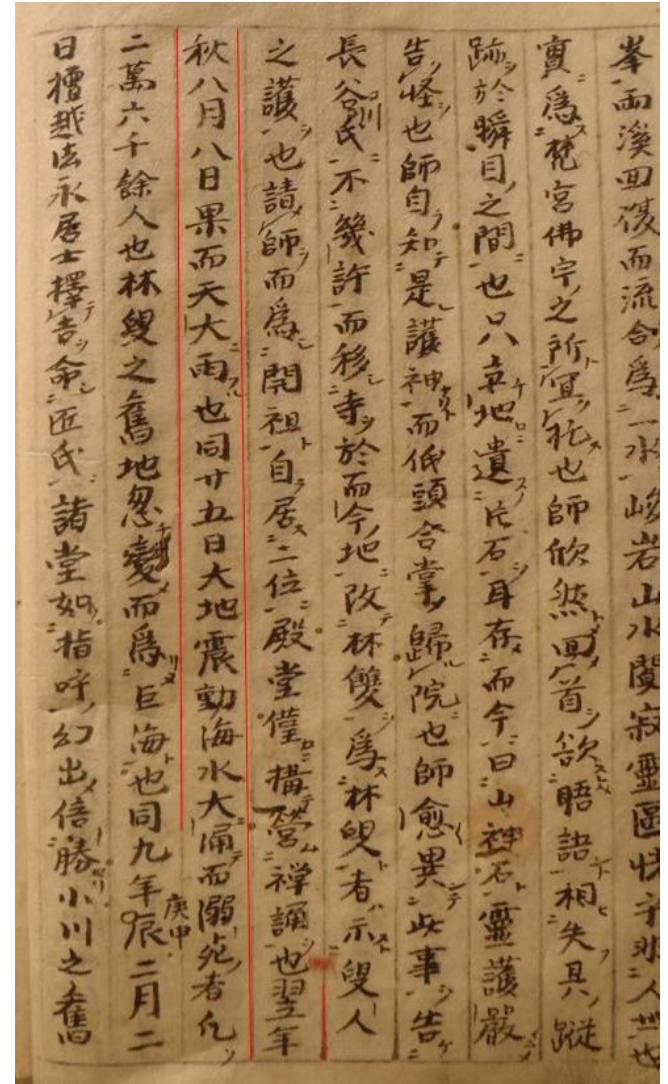 峯雨溪回復而流合爲一水峻岩山水闃寂靈區快乎非人世也
實爲梵宮佛宇之所宜託也師欣然回首欲晤語相失其蹤
跡於瞬目之間也只空地遺片石耳存而今曰山神石靈護嚴
告怪也師自知是護神而低頭合掌歸院也師愈異此事告
長谷川氏不幾許而移寺於而今地改林雙爲林叟者示叟人
之護也請師而爲開祖自居二位殿堂僅搆營禅誦也翌年
秋八月八日果而天大雨也同廿五日大地震動海水大涌而溺死者凡
二萬六千餘人也林叟之舊地忽變而爲巨海也同九年庚申辰二月二
日檀越法永居士擇吉命匠氏諸堂如指呼幻出倍勝小川之舊